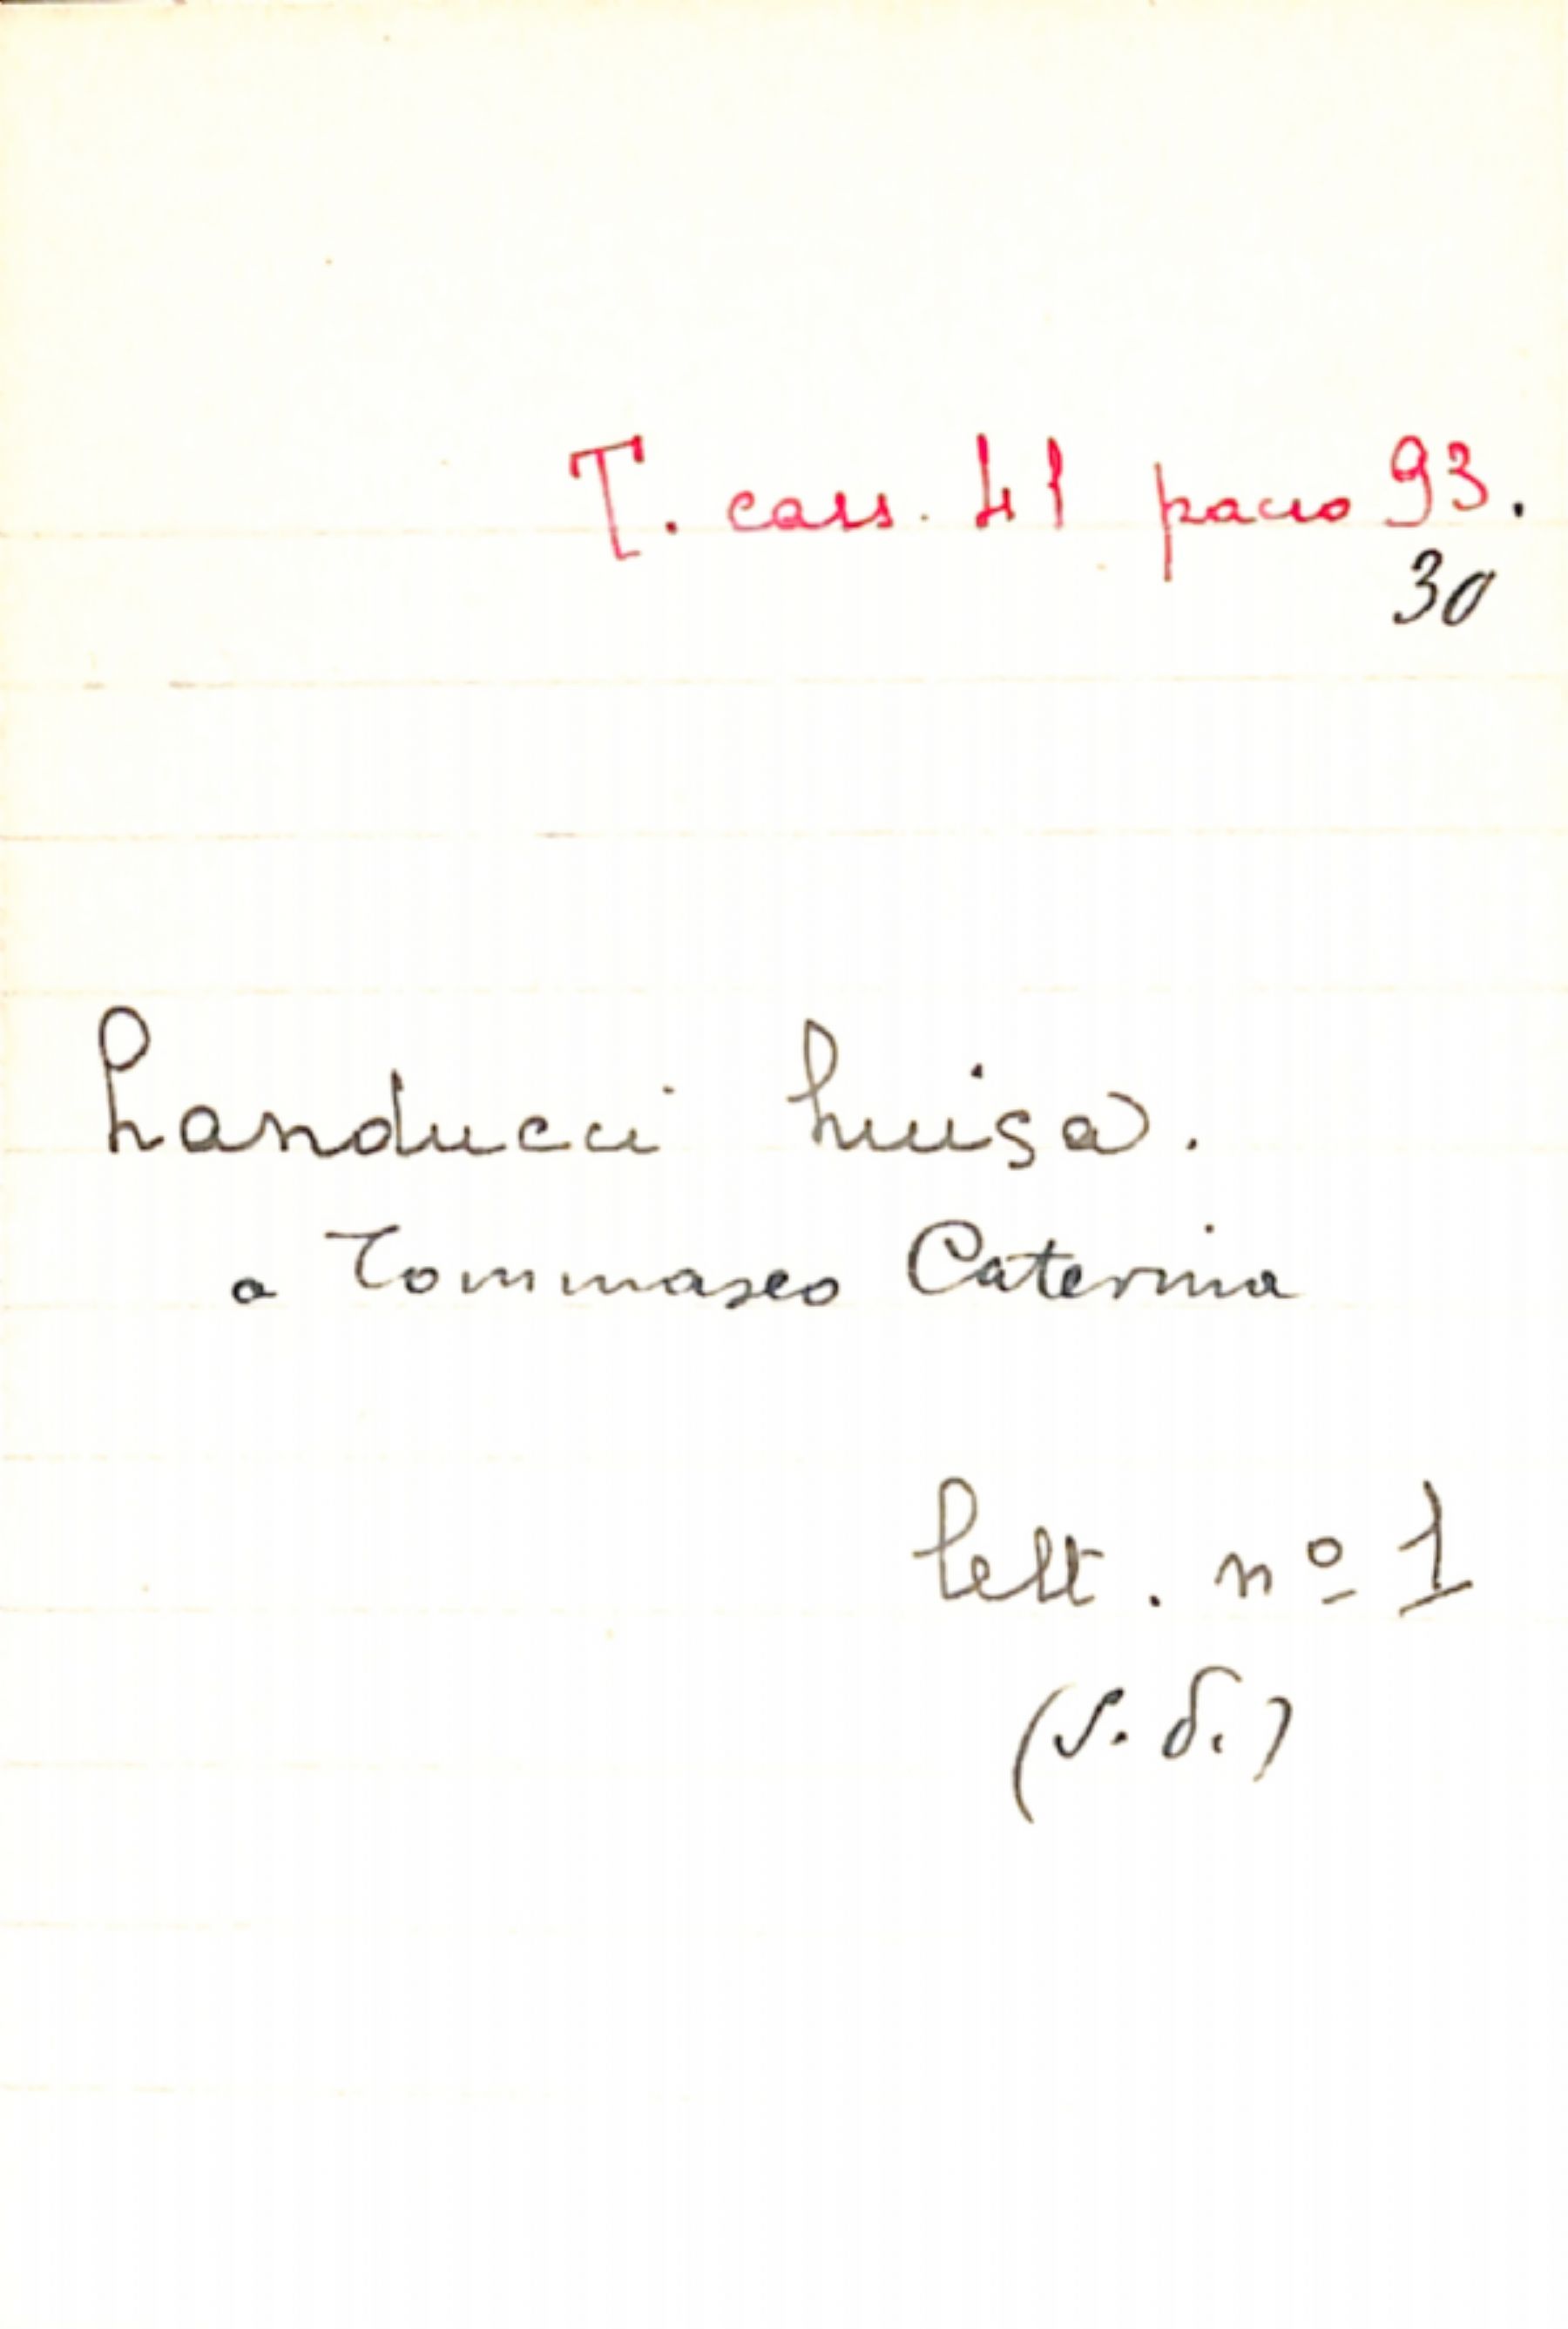 T. cass. 41 pacco 93.
30
Landucci Luisa.
a Tommaseo Caterina
Lett. nº 1
(s. d.)